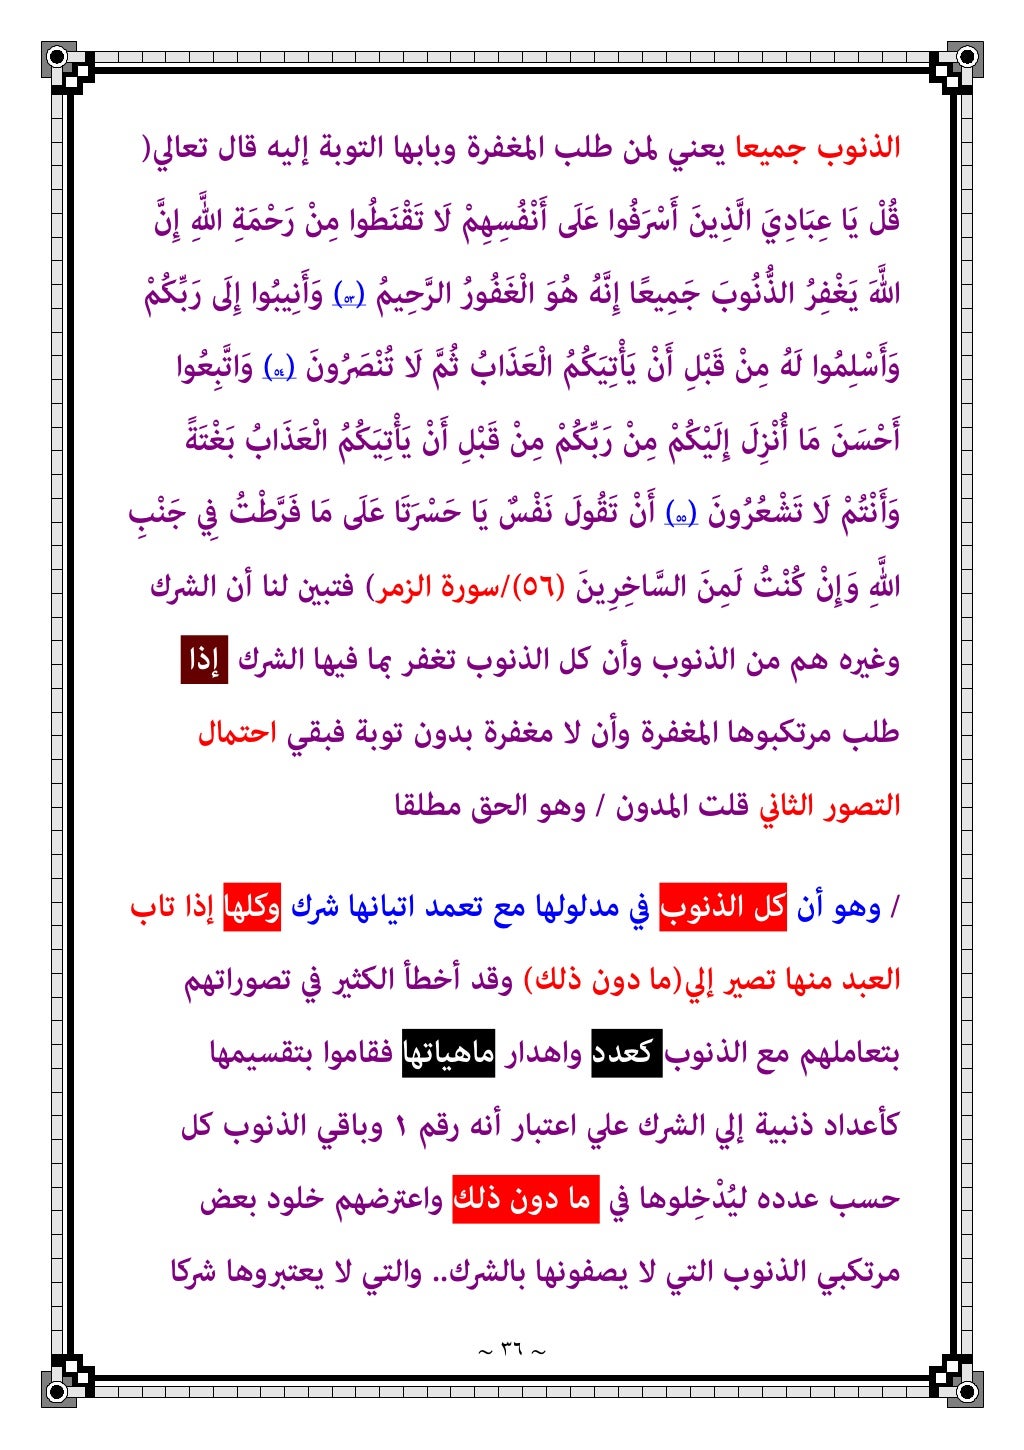 الذنوب جميعا يعني لمن طلب المغفرة وبابها التوبة إليه قال تعالي(
قُلْ يَا عِبَادِيَ الَّذِينَ أَسْرَفُوا عَلَى أَنْفُسِهِمْ لَا تَقْنَطُوا مِنْ رَحْمَةِ اللَّهِ إِنَّ
اللَّهَ يَغْفِرُ الذُّنُوبَ جَمِيعًا إِنَّهُ هُوَ الْغَفُورُ الرَّحِيمُ (٥٣) وَأَنِيبُوا إِلَى رَبِّكُمْ
وَأَسْلِمُوا لَهُ مِنْ قَبْلِ أَنْ يَأْتِيَكُمُ الْعَذَابُ ثُمَّ لَا تُنْصَرُونَ (٥٤) وَاتَّبِعُوا
أَحْسَنَ مَا أُنْزِلَ إِلَيْكُمْ مِنْ رَبِّكُمْ مِنْ قَبْلِ أَنْ يَأْتِيَكُمُ الْعَذَابُ بَغْتَةً
وَأَنْتُمْ لَا تَشْعُرُونَ (٥٥) أَنْ تَقُولَ نَفْسٌ يَا حَسْرَتَا عَلَى مَا فَرَّطْتُ فِي جَنْبِ
اللَّهِ وَإِنْ كُنْتُ لَمِنَ السَّاخِرِينَ (٥٦)/سورة الزمر) فتبين لنا أن الشرك
وغيره هم من الذنوب وأن كل الذنوب تغفر بما فيها الشرك إذا
طلب مرتكبوها المغفرة وأن لا مغفرة بدون توبة فبقي احتمال
التصور الثاني قلت المدون / وهو الحق مطلقا
/ وهو أن كل الذنوب في مدلولها مع تعمد اتيانها شرك وكلها إذا تاب
العبد منها تصير إلي(ما دون ذلك) وقد أخطأ الكثير في تصوراتهم
بتعاملهم مع الذنوب كعدد واهدار ماهياتها فقاموا بتقسيمها
كأعداد ذنبية إلي الشرك علي اعتبار أنه رقم ١ وباقي الذنوب كل
حسب عدده ليُدْخِلوها في ما دون ذلك واعترضهم خلود بعض
مرتكبي الذنوب التي لا يصفونها بالشرك.. والتي لا يعتبروها شركا
~ ٣٦ ~